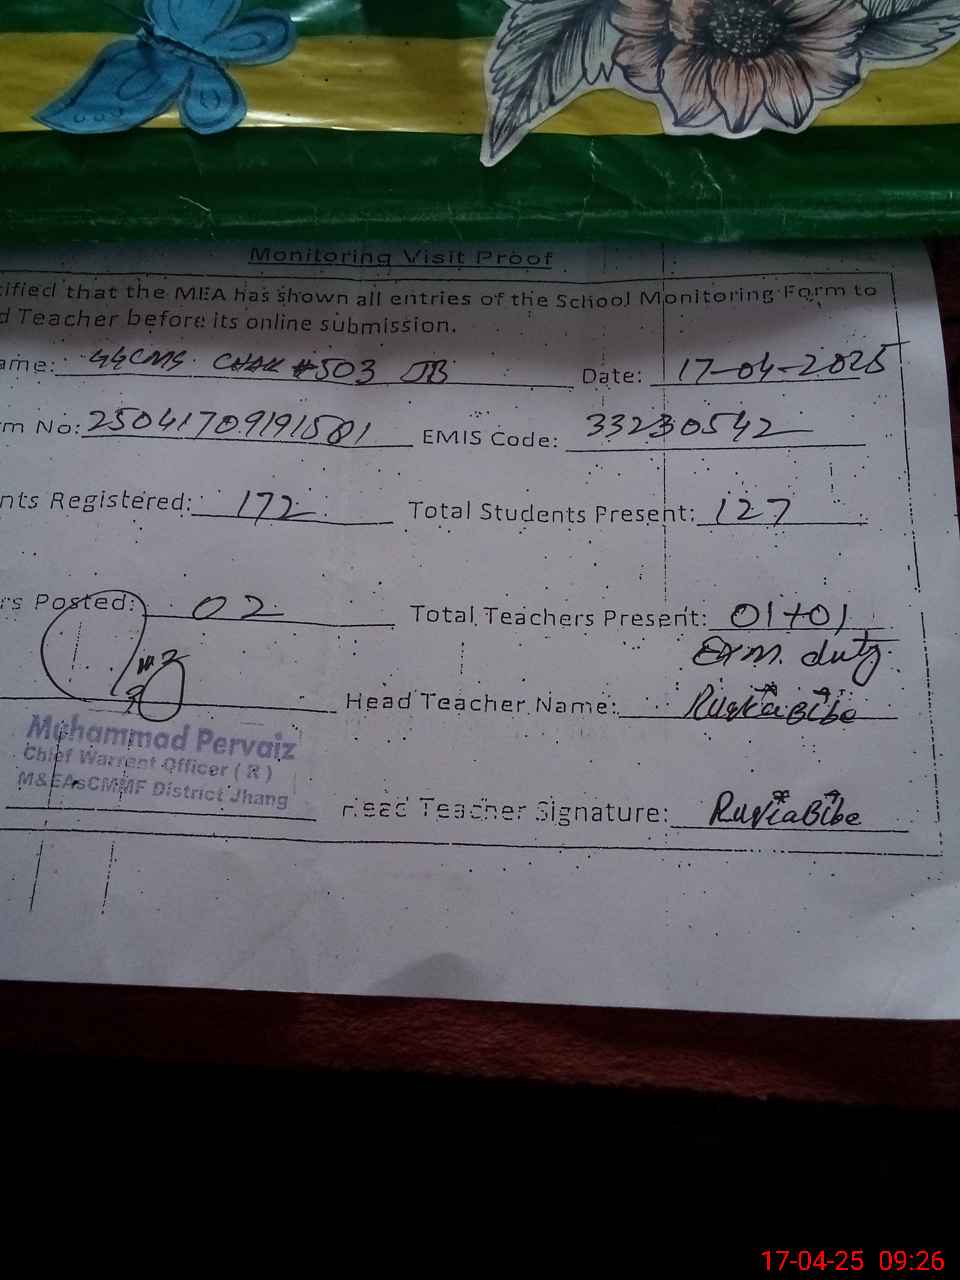 Monitoring Visit Proof
tified that the MEA has shown all entries of the School Monitoring Form to
d Teacher before its online submission.
ame: GGCMS CHAK #503 JB Date: 17-04-2025
rm No: 25041709191581 EMIS Code: 33230542
nts Registered: 172 Total Students Present: 127
rs Posted: 02 Total Teachers Present: 01+01
Exm. duty
Head Teacher Name: RuqiaBibe
Muhammad Pervaiz
Chief Warrent Officer ( R )
M&EAsCMMF District Jhang
Head Teacher Signature: RuqiaBibe
17-04-25 09:26